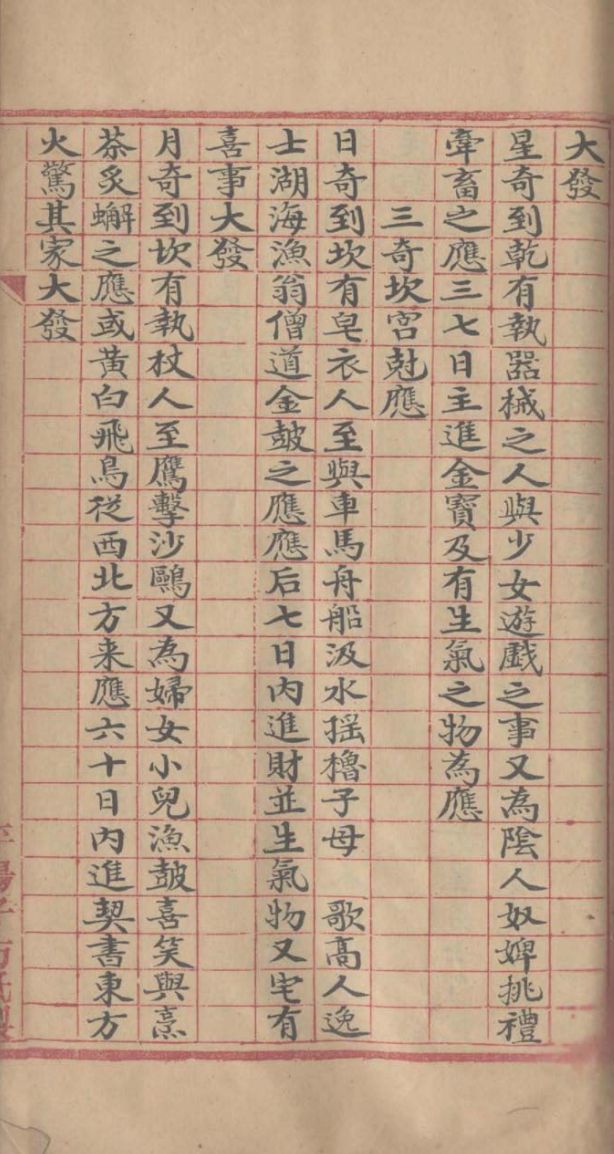 大發
星奇到乾有執器械之人與少女遊戲之事又為陰人奴婢挑禮
牽畜之應三七日主進金寶及有生氣之物為應
三奇坎宮尅應
日奇到坎有皂衣人至與車馬舟船汲水揺櫓子母 歌高人逸
士湖海漁翁僧道金皷之應應后七日内進財並生氣物又宅有
喜事大發
月奇到坎有執杖人至鷹擊沙鷗又為婦女小兒漁皷喜笑與烹
茶炙蠏之應或黃白飛鳥從西北方来應六十日内進契書東方
火驚其家大發